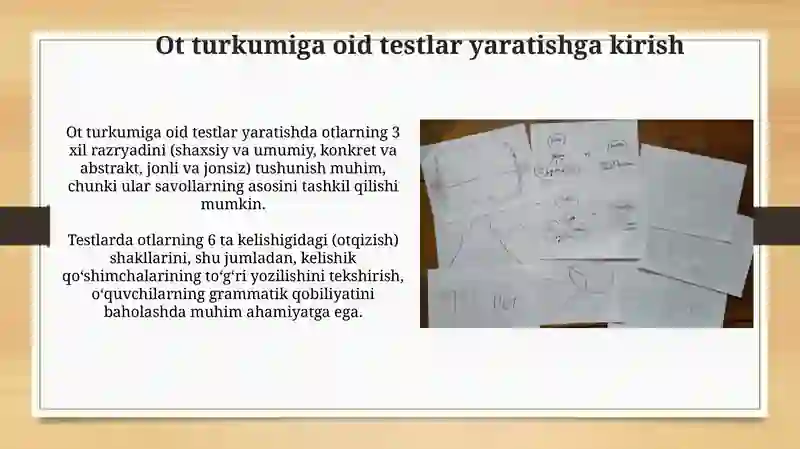 Ot turkumiga oid testlar yaratishga kirish
Ot turkumiga oid testlar yaratishda otlarning 3
xil razryadini (shaxsiy va umumiy, konkret va
abstrakt, jonli va jonsiz) tushunish muhim,
chunki ular savollarning asosini tashkil qilishi
mumkin.
Testlarda otlarning 6 ta kelishigidagi (otqizish)
shakllarini, shu jumladan, kelishik
qo‘shimchalarining to‘g‘ri yozilishini tekshirish,
o‘quvchilarning grammatik qobiliyatini
baholashda muhim ahamiyatga ega.